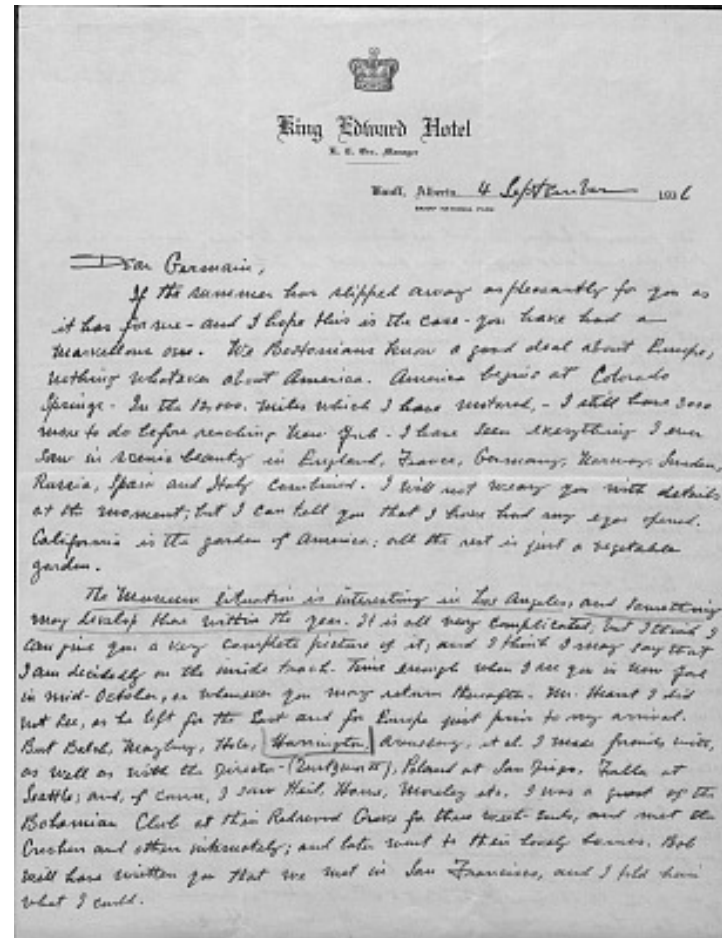 King Edward Hotel
Manager
Banff, Alberta, 4 September 1936
BANFF NATIONAL PARK
Dear Germain,
If the summer has slipped away as pleasantly for you as
it has for me - and I hope this is the case - you have had a
marvellous one. We Bostonians know a good deal about Europe,
nothing whatever about America. America begins at Colorado
Springs - In the 12,000. miles which I have motored, - I still have 3000
more to do before reaching New York - I have seen everything I ever
saw in scenic beauty in England, France, Germany, Norway, Sweden,
Russia, Spain and Italy combined. I will not weary you with details
at the moment; but I can tell you that I have had my eyes opened.
California is the garden of America; all the rest is just a vegetable
garden.
The Museum situation is interesting in Los Angeles, and something
may develop there within the year. It is all very complicated, but I think I
can give you a very complete picture of it; and I think I may say that
I am decidedly on the inside track. Time enough when I see you in New York
in mid-October, or whenever you may return thereafter. Mr. Hearst I did
not see, as he left for the East and for Europe just prior to my arrival.
But Balch, Maybury, Hole, Harrington, Armsburg, et al. I made friends with,
as well as with the Director - Poland at San Diego, Fuller at
Seattle; and, of course, I saw Heil, Howe, Morley etc. I was a guest of the
Bohemian Club at their Redwood Grove for three week-ends, and met the
Crockers and others intimately; and later went to their lovely homes. Bob
will have written you that we met in San Francisco, and I told him
what I could.